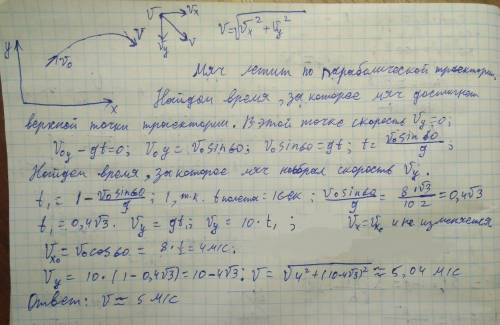 y
v₀
v
x
v vₓ
v_y v
v=√(vₓ²+v_y²)
Мяч летит по параболической траектории.
Найдём время, за которое мяч достигнет
верхней точки траектории. В этой точке скорость v_y=0;
v₀y-gt=0; v₀y=v₀sin60; v₀sin60=gt; t=v₀sin60/g;
Найдём время, за которое мяч набрал скорость v_y.
t₁=1-v₀sin60/g; 1, т.к. t полёта=1сек; v₀sin60/g=8·√3/10·2=0,4√3
t₁=0,4√3. v_y=gt₁; v_y=10·t₁; vₓ=vₓ₀ и не изменяется
vₓ₀=v₀cos60=8·½=4м/с.
v_y=10·(1-0,4√3)=10-4√3; v=√(4²+(10-4√3)²)≈5,04 м/с
Ответ: v≃5 м/с